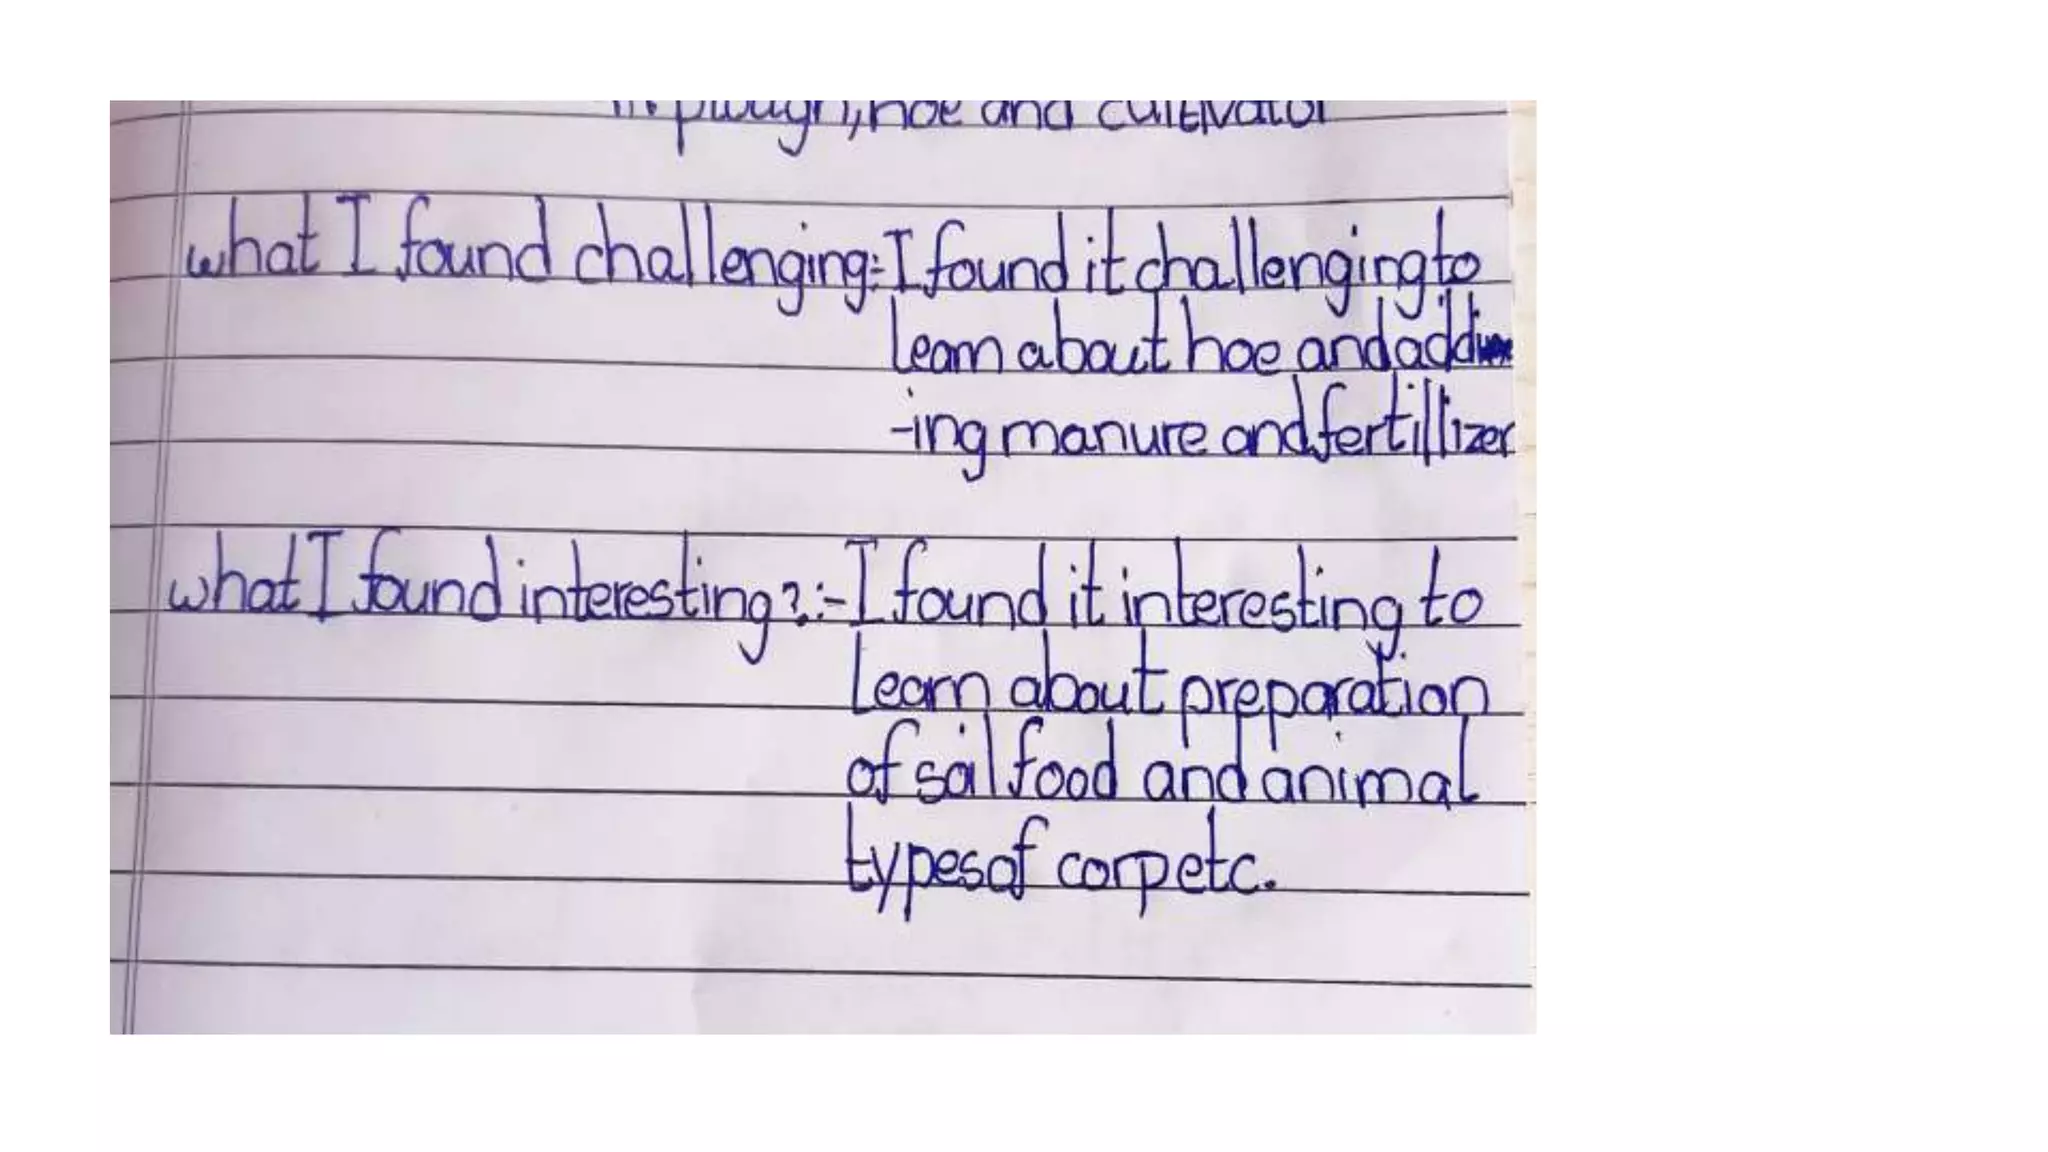 plough, hoe and cultivator
what I found challenging:- I found it challenging to
learn about hoe and add
-ing manure and fertillizer
what I found interesting? :- I found it interesting to
Learn about preparation
of soil food and animal
types of corp etc.